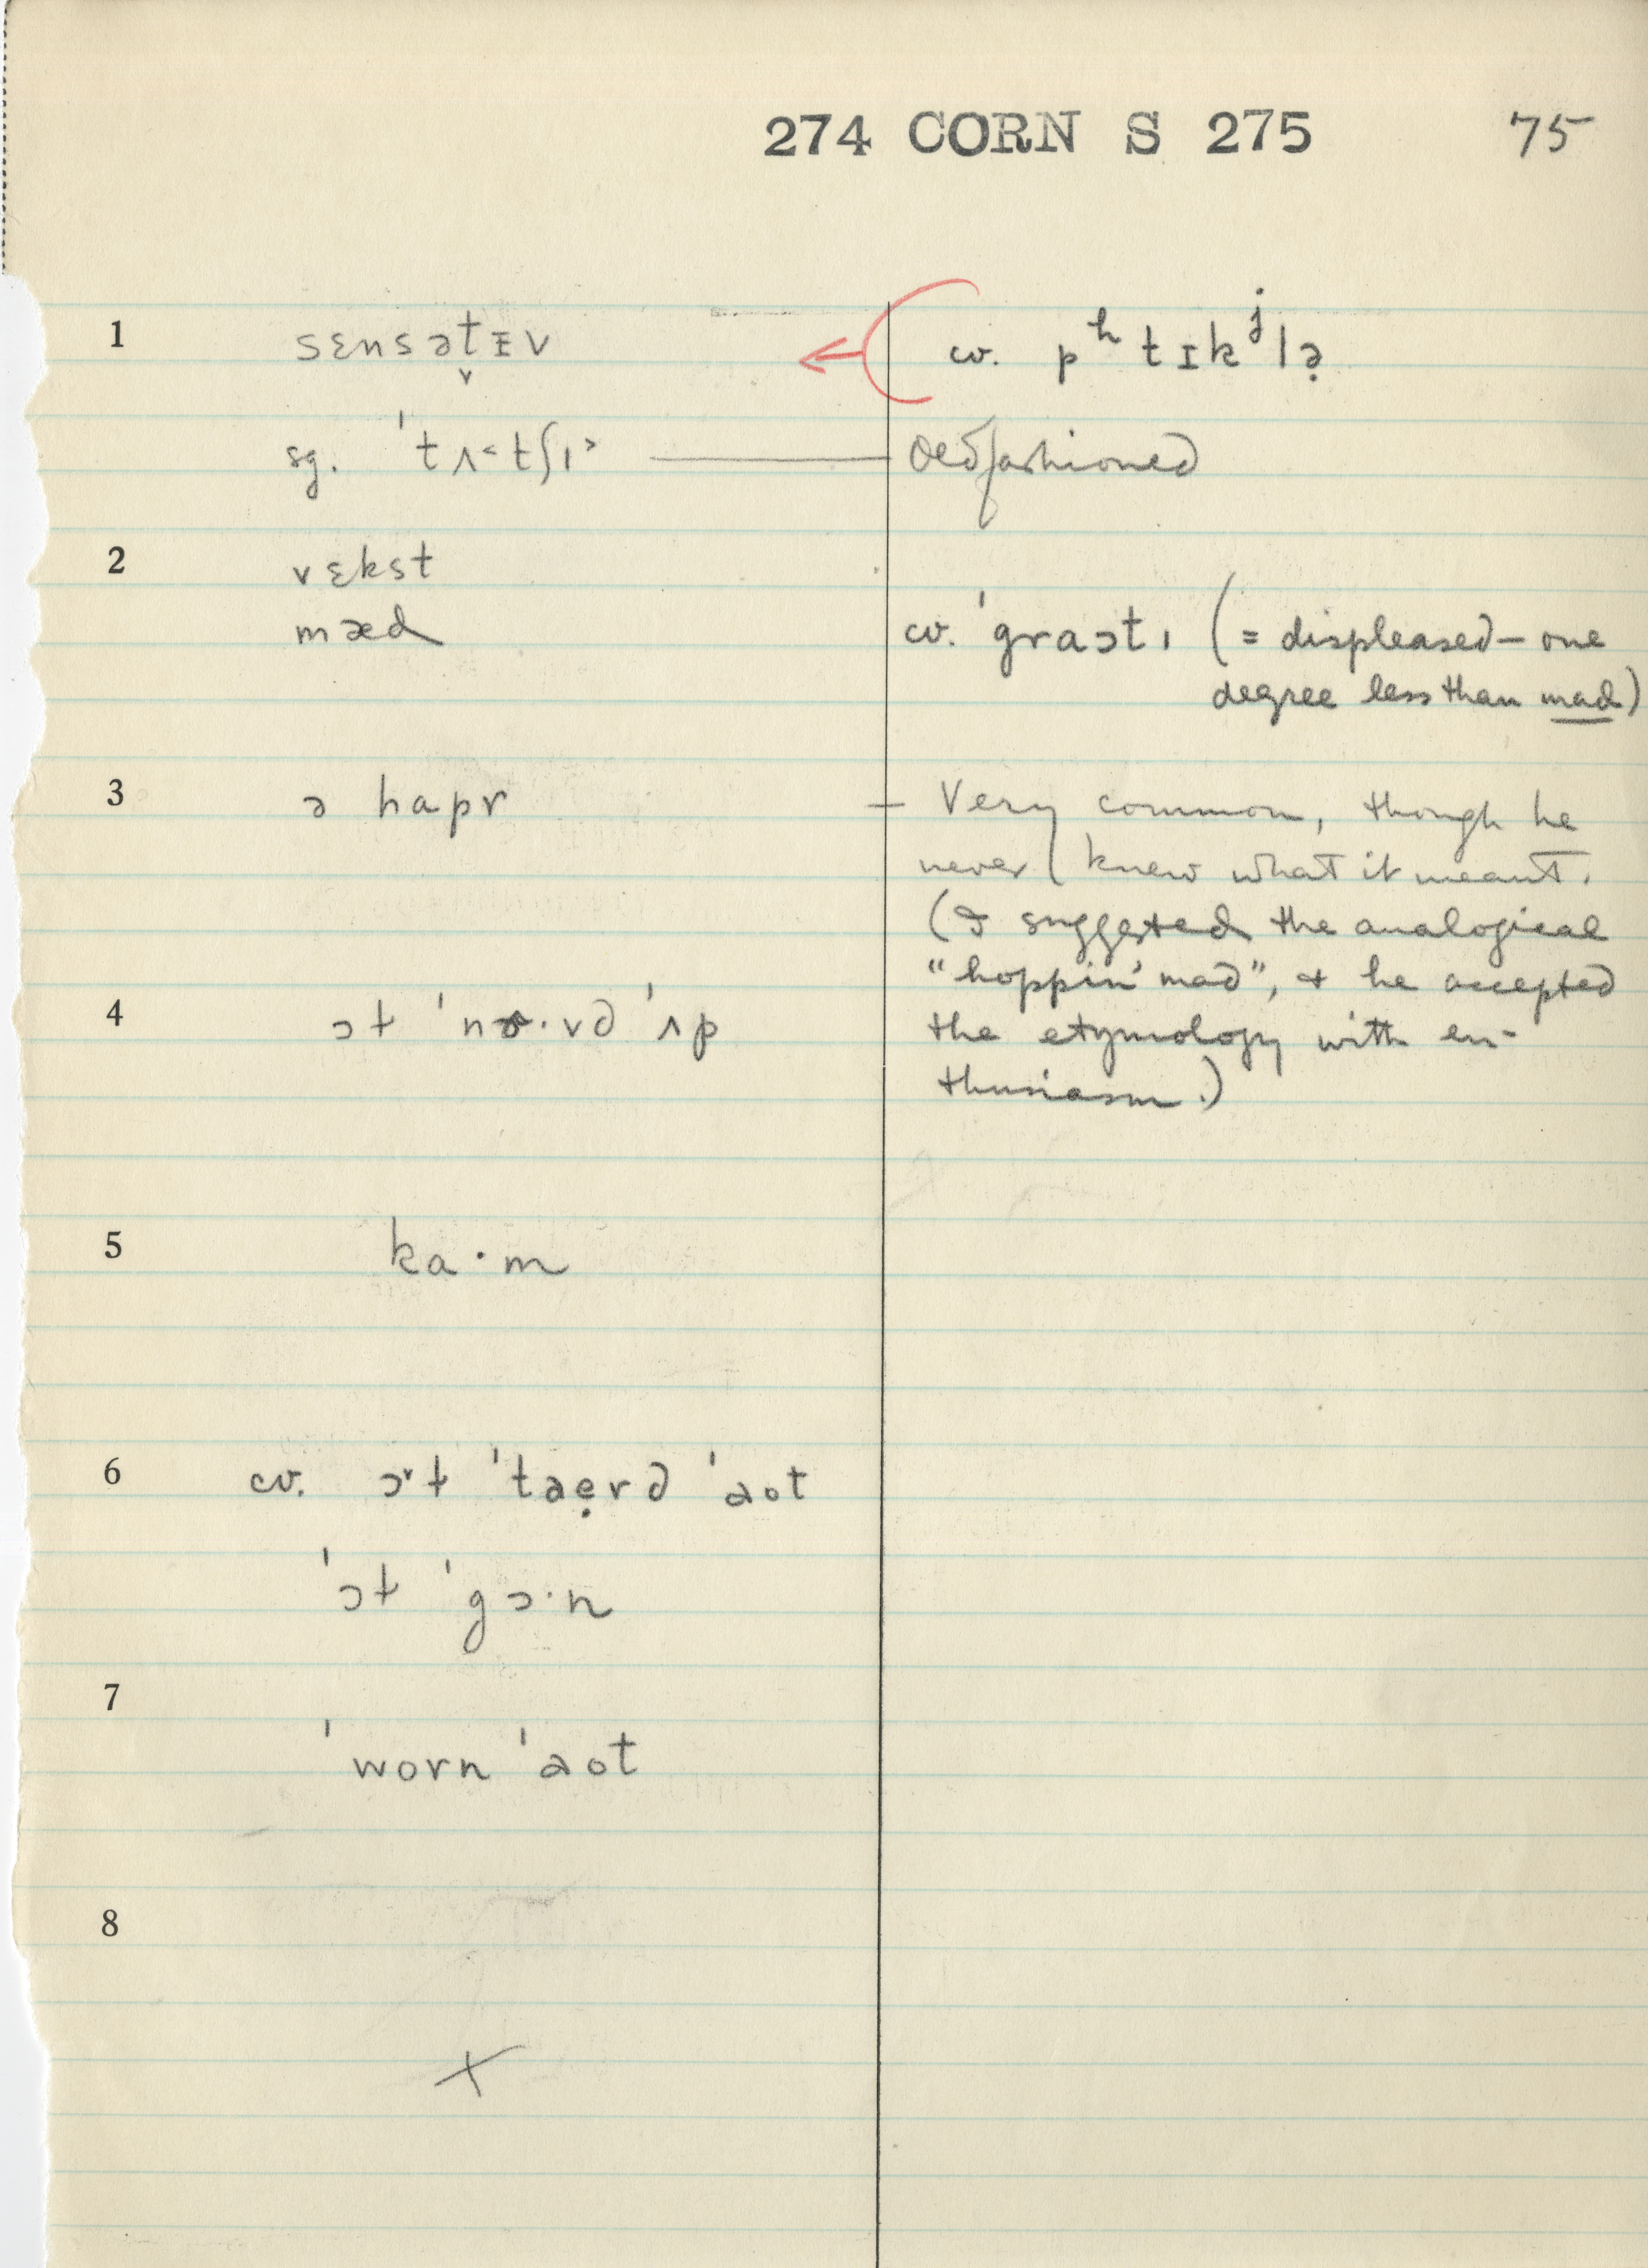 274 CORN S 275 75
1 sɛnsət̬ɪv cv. pʰtɪkʲlə̣
sg. 'tʌ˂tʃɪ˃ — Oldfashioned
2 vɛkst
mæd cv. 'graɔtɪ (= displeased – one
degree less than mad)
3 ə hapr – Very common, though he
never knew what it meant.
(I suggested the analogical
"hoppin' mad", & he accepted
4 ɔɫ 'nɚ·vd 'ʌp the etymology with en-
thusiasm.)
5 ka·m
6 cv. ɔ˅ɫ 'taẹrd 'aot
'ɔɫ 'gɔ·n
7
'worn 'aot
8
X